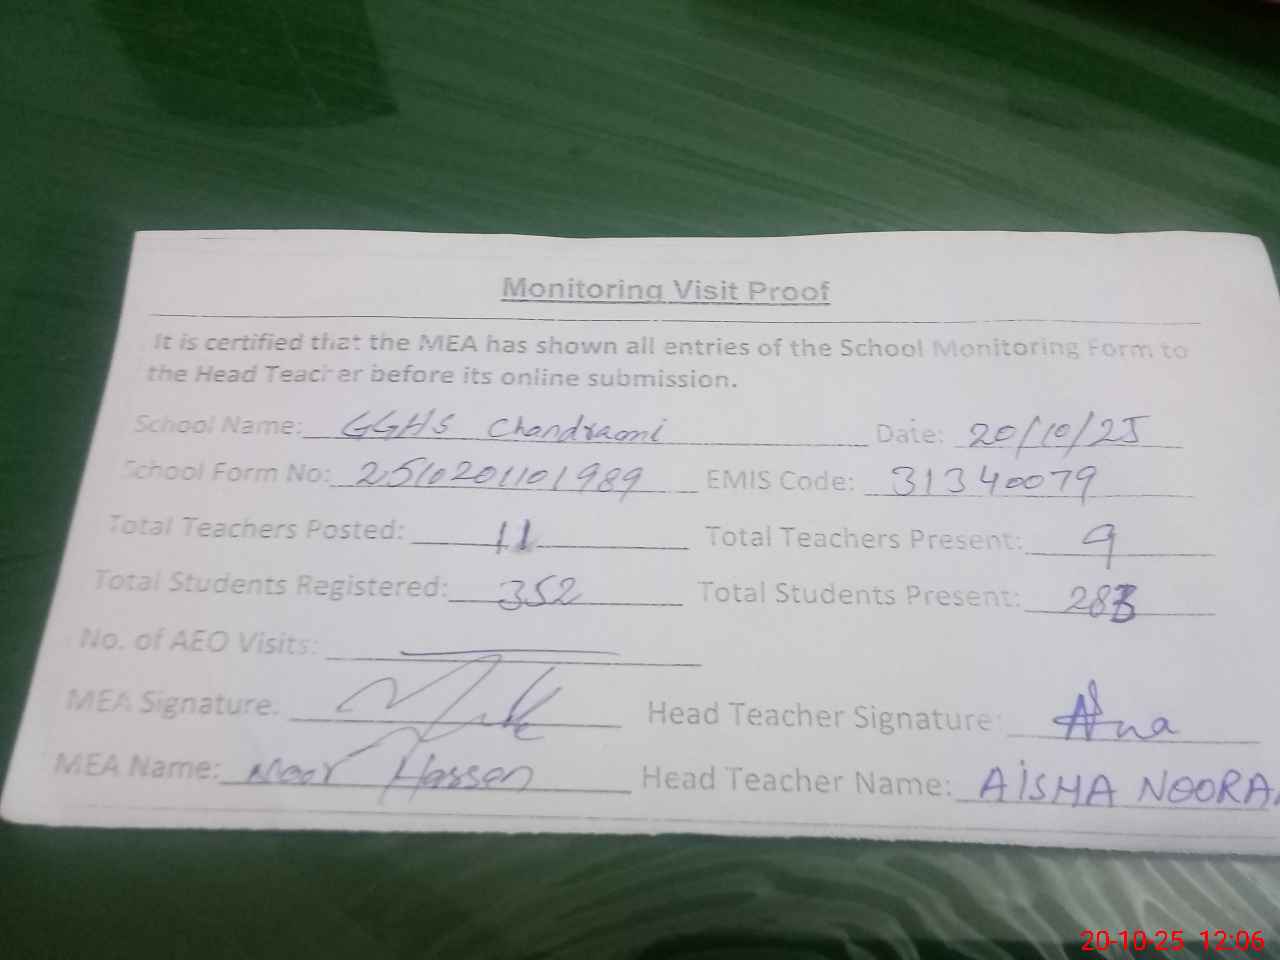 Monitoring Visit Proof
It is certified that the MEA has shown all entries of the School Monitoring Form to
the Head Teacher before its online submission.
School Name: GGHS Chandrami Date: 20/10/25
School Form No: 2510201101989 EMIS Code: 31340079
Total Teachers Posted: 11 Total Teachers Present: 9
Total Students Registered: 352 Total Students Present: 283
No. of AEO Visits:
MEA Signature: Head Teacher Signature:
MEA Name: Noor Hassan Head Teacher Name: AISHA NOORA
20-10-25 12:06